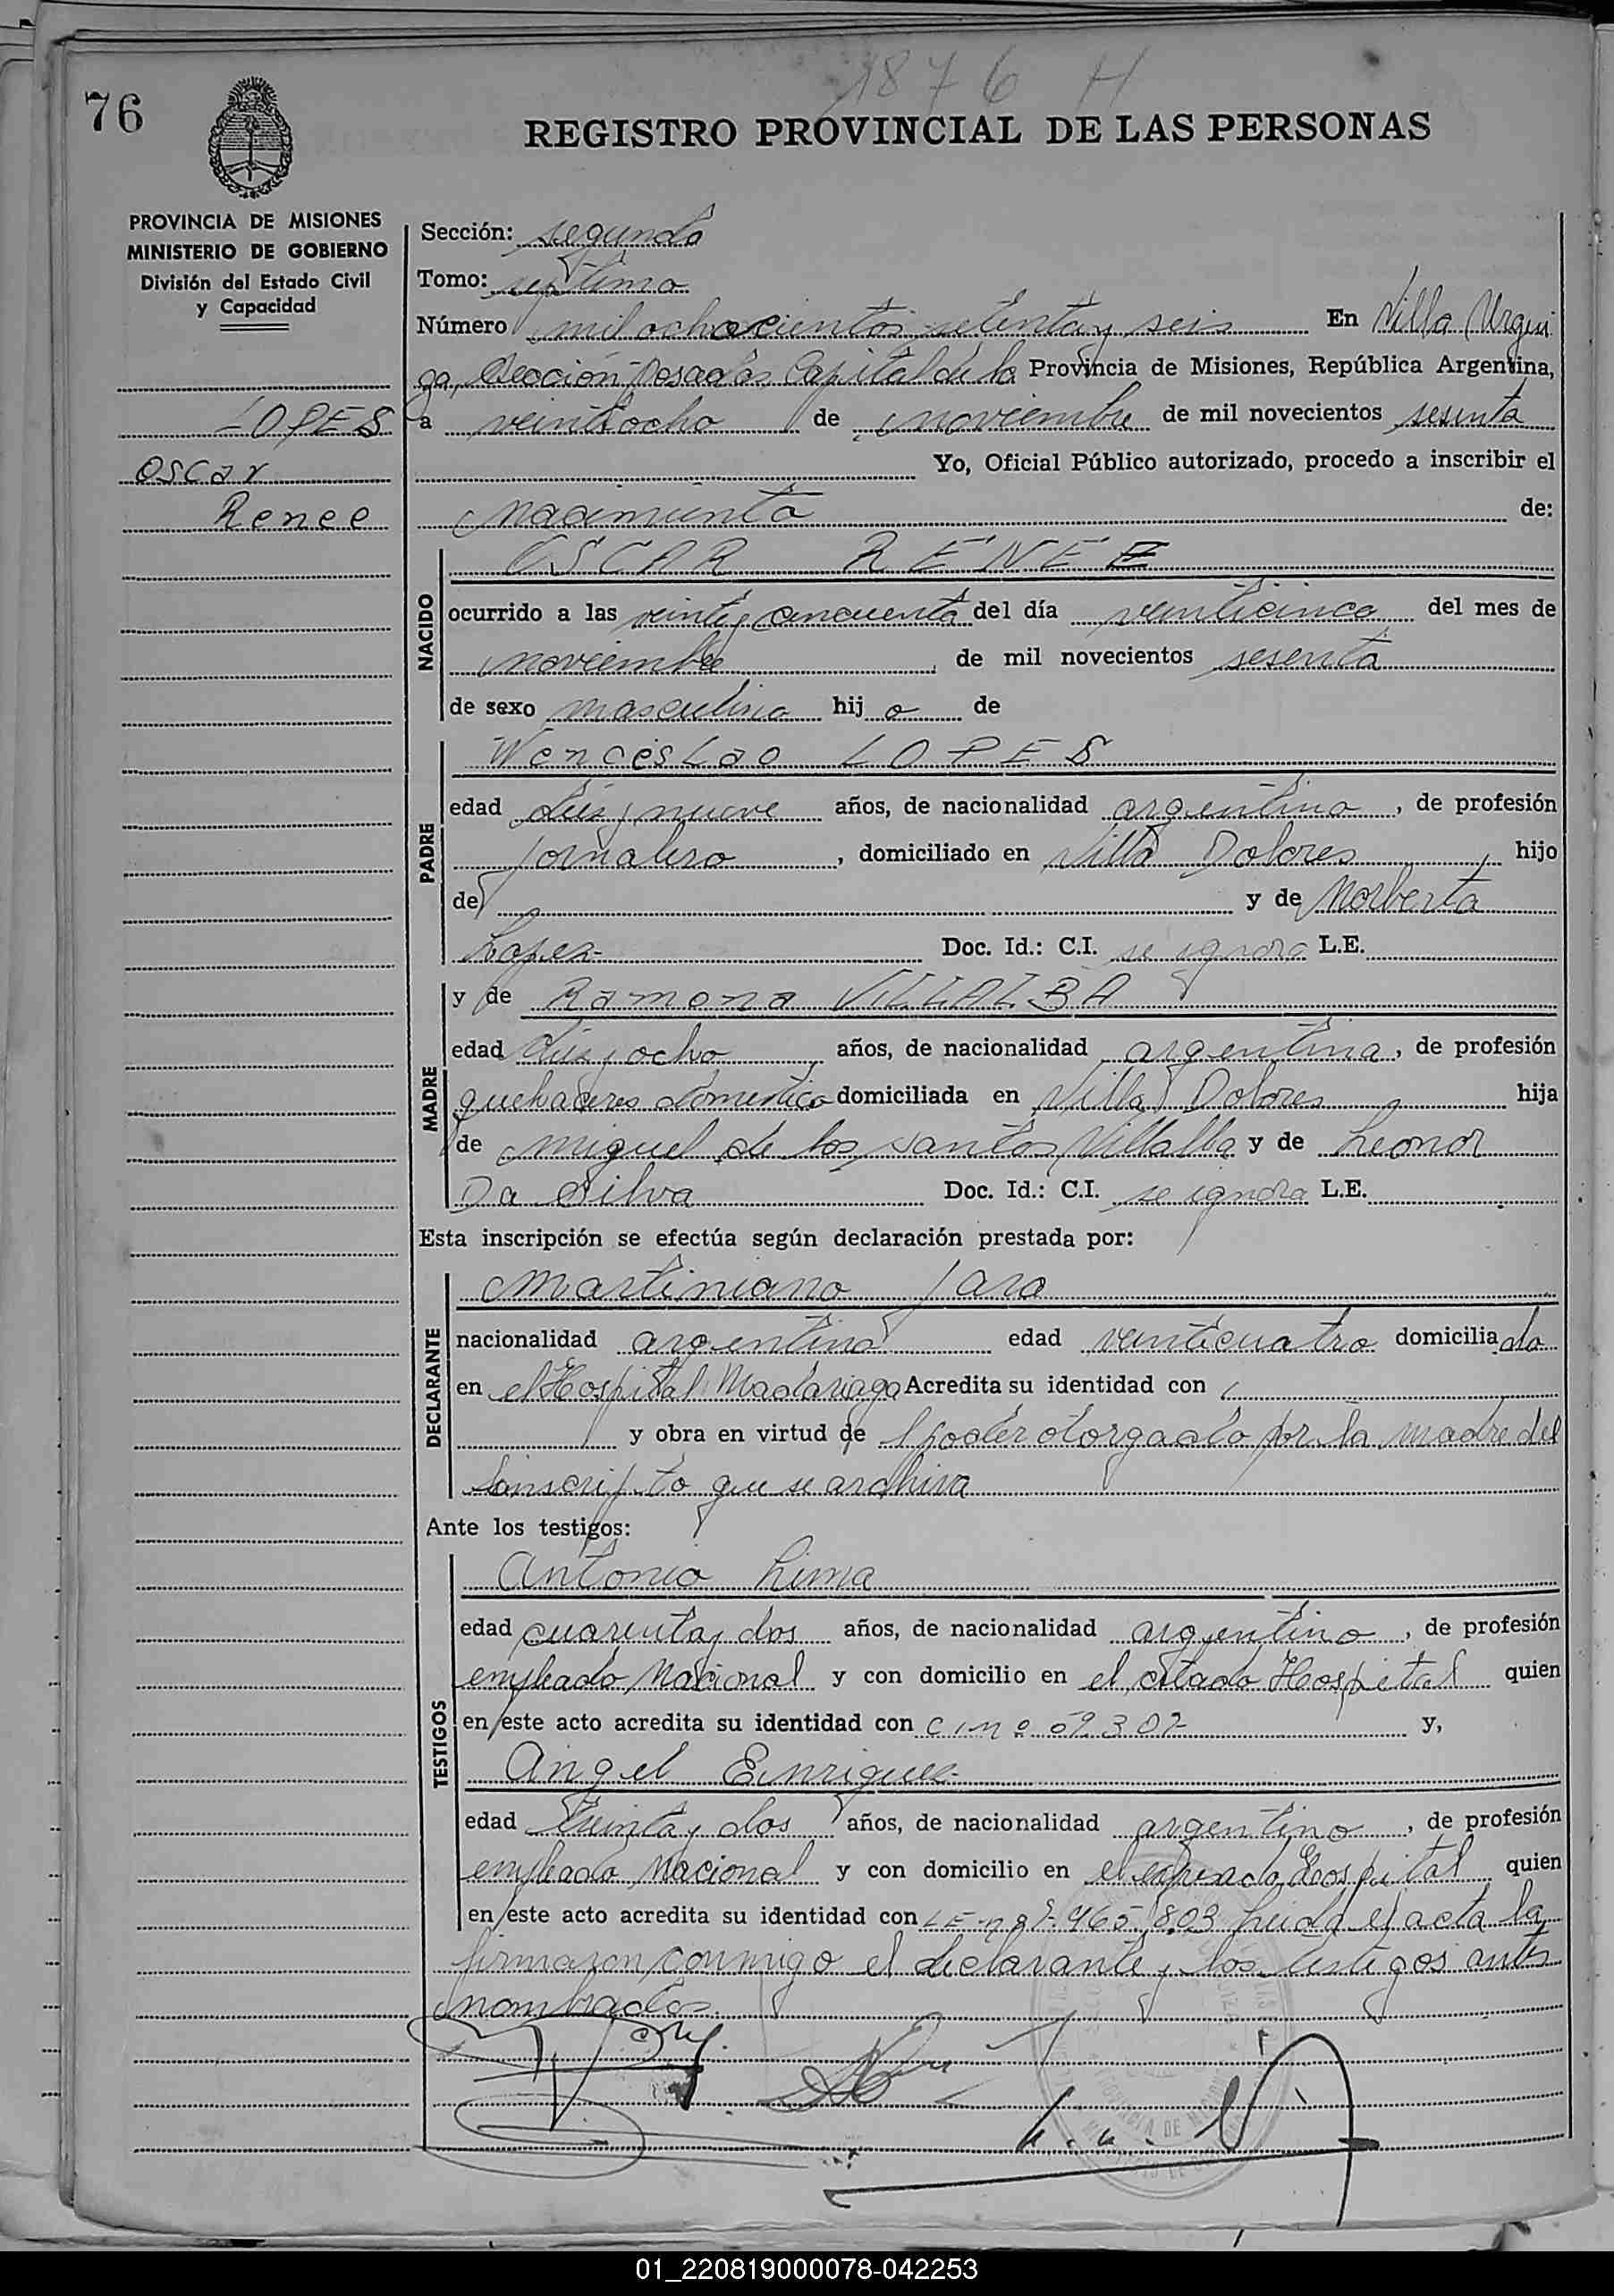 1876 H
76
REGISTRO PROVINCIAL DE LAS PERSONAS
PROVINCIA DE MISIONES
MINISTERIO DE GOBIERNO
División del Estado Civil
y Capacidad
LOPES
Oscar
Renee
Sección: segunda
Tomo: septimo
Número mil ochocientos setenta y seis En Villa Urqui
za, Sección Posadas Capital de la Provincia de Misiones, República Argentina,
a veintiocho de noviembre de mil novecientos sesenta
Yo, Oficial Público autorizado, procedo a inscribir el
nacimiento de:
NACIDO
OSCAR RENEE
ocurrido a las veinte y cincuenta del día veinticinco del mes de
noviembre, de mil novecientos sesenta
de sexo masculino hij o de
PADRE
Wenceslao LOPES
edad diez y nueve años, de nacionalidad argentino, de profesión
jornalero, domiciliado en Villa Dolores, hijo
de y de Norberta
Lopez- Doc. Id.: C.I. se ignora L.E.
MADRE
y de Ramona VILLALBA
edad diez y ocho años, de nacionalidad argentina, de profesión
quehaceres domestico domiciliada en Villa Dolores hija
de Miguel de los Santos Villalba y de Leonor
Da Silva Doc. Id.: C.I. se ignora L.E.
Esta inscripción se efectúa según declaración prestada por:
DECLARANTE
Martiniano Jara
nacionalidad argentino edad veinticuatro domicilia do
en el Hospital Madariaga Acredita su identidad con
y obra en virtud de poder otorgado por la madre del
inscripto que se archiva
Ante los testigos:
TESTIGOS
Antonio Lima
edad cuarenta y dos años, de nacionalidad argentino, de profesión
empleado Nacional y con domicilio en el citado Hospital quien
en este acto acredita su identidad con C.I. nº 69307- y,
Angel Enriquez-
edad treinta y dos años, de nacionalidad argentino, de profesión
empleado Nacional y con domicilio en el expresado Hospital quien
en este acto acredita su identidad con L E- nº 7.465.803 Leida el acta la
firmaron conmigo el declarante y los testigos antes
nombrados.
01_220819000078-042253